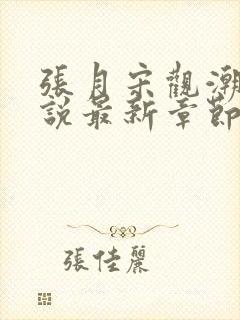 張月宋觀潮
說最新章節
張佳麗